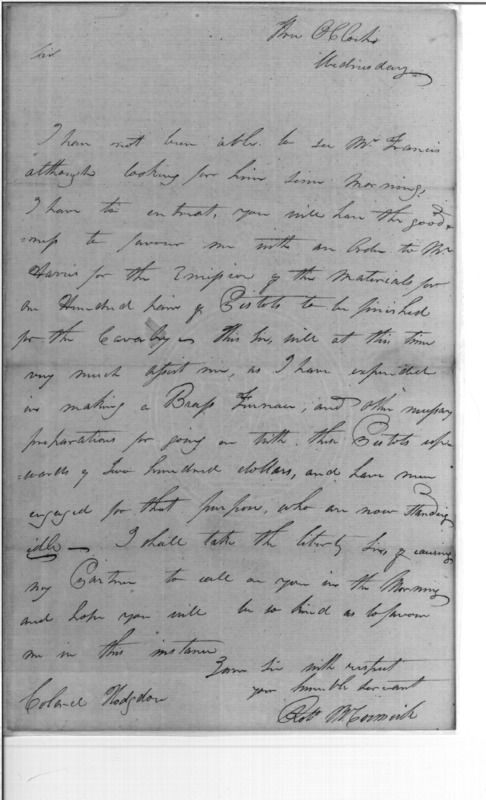 Three O Clock
Wednesday
Sir
I have not been able to see Mr Francis
although looking for him since Morning,
I have to entreat, you will have the good-
-ness to favour me with an Order to Mr
Harris for the of the Materials for
one Hundred pair of Pistols to be finished
for the Cavalry - this Sir, will at this time
very much assist me, as I have expended
in making a Brass Furnace, and other necessary
preparations for going on with these Pistols upw
-wards of two hundred dollars, and have men
engaged for that purpose, who are now Standing
idle - I shall take the liberty Sir, of causing
my Partner to call on you in the Morning
and hope you will be so kind as to favour
me in this instance
I am Sir with respect
your humble Servant
Colonel Hodgdon
Robt McCormick